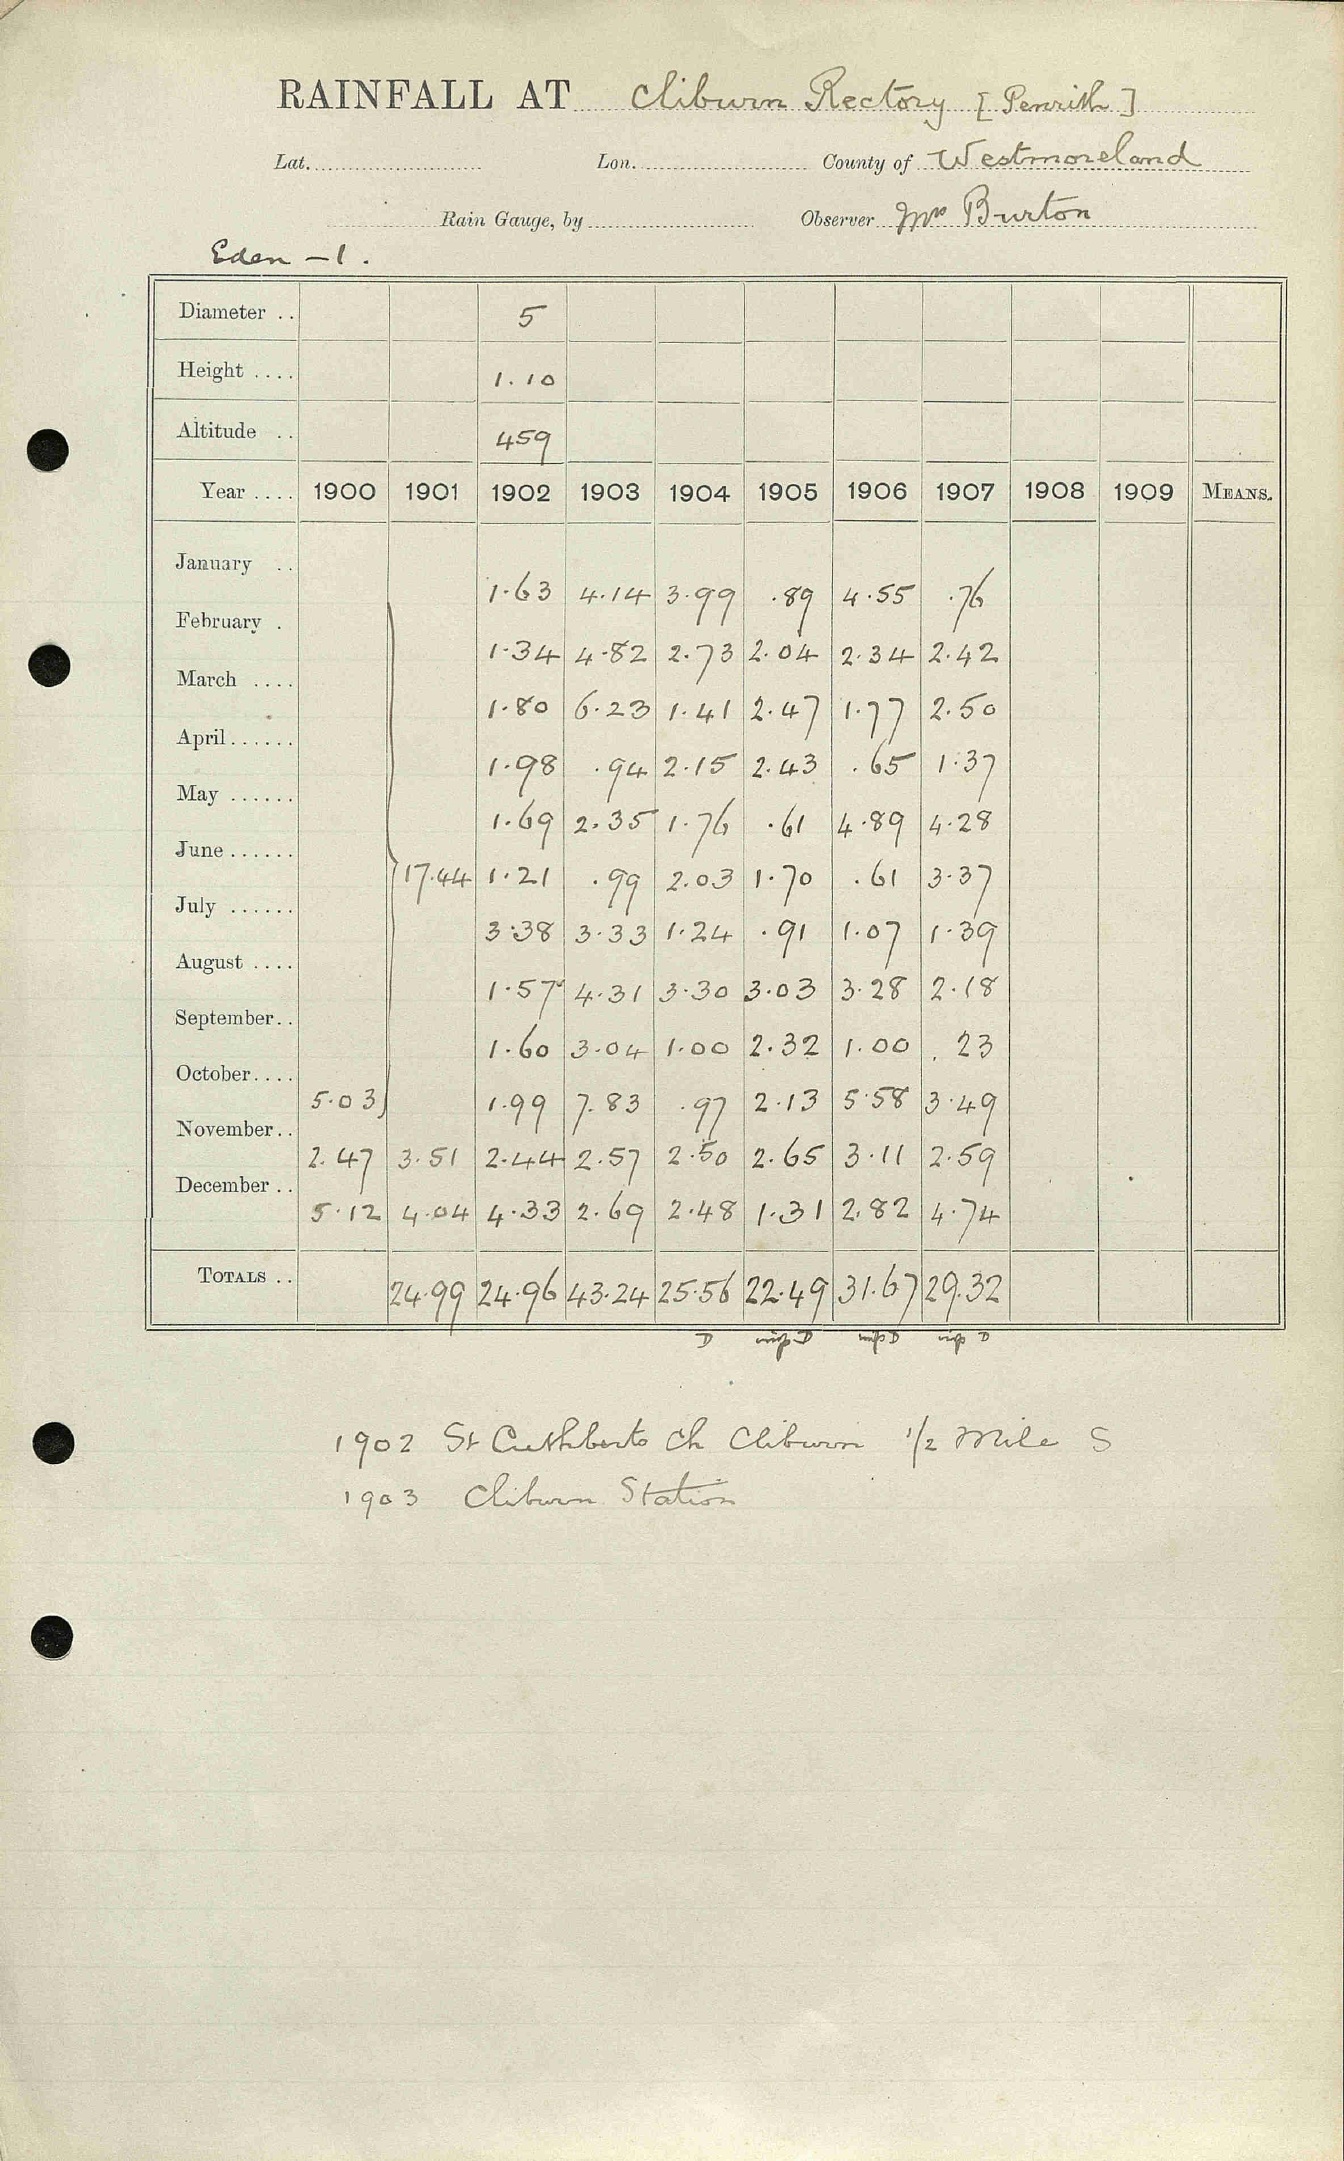 RAINFALL AT Cliburn Rectory [Penrith]
Lat. Lon. County of Westmoreland
Rain Gauge, by Observer Mrs Burton
Eden - 1.
Diameter .. 5
Height .... 1.10
Altitude .. 459
Year .... 1900 1901 1902 1903 1904 1905 1906 1907 1908 1909 MEANS.
January .. 1.63 4.14 3.99 .89 4.55 .76
February . 1.34 4.82 2.73 2.04 2.34 2.42
March .... 1.80 6.23 1.41 2.47 1.77 2.50
April...... 1.98 .94 2.15 2.43 .65 1.37
May ...... 1.69 2.35 1.76 .61 4.89 4.28
June...... 17.44 1.21 .99 2.03 1.70 .61 3.37
July ...... 3.38 3.33 1.24 .91 1.07 1.39
August .... 1.57 4.31 3.30 3.03 3.28 2.18
September.. 1.60 3.04 1.00 2.32 1.00 .23
October.... 5.03 1.99 7.83 .97 2.13 5.58 3.49
November.. 2.47 3.51 2.44 2.57 2.50 2.65 3.11 2.59
December .. 5.12 4.04 4.33 2.69 2.48 1.31 2.82 4.74
TOTALS .. 24.99 24.96 43.24 25.56 22.49 31.67 29.32
D D D D
1902 St Cuthberts Ch Cliburn 1/2 Mile S
1903 Cliburn Station